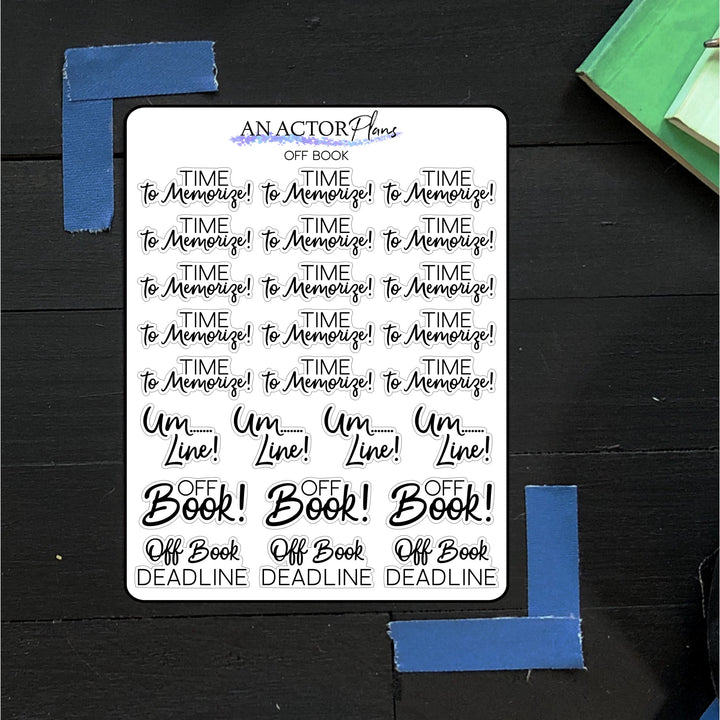 AN ACTOR Plans
OFF BOOK
TIME TIME TIME
to Memorize! to Memorize! to Memorize!
TIME TIME TIME
to Memorize! to Memorize! to Memorize!
TIME TIME TIME
to Memorize! to Memorize! to Memorize!
TIME TIME TIME
to Memorize! to Memorize! to Memorize!
TIME TIME TIME
to Memorize! to Memorize! to Memorize!
Um...... Um...... Um...... Um......
Line! Line! Line! Line!
OFF OFF OFF
Book! Book! Book!
Off Book Off Book Off Book
DEADLINE DEADLINE DEADLINE